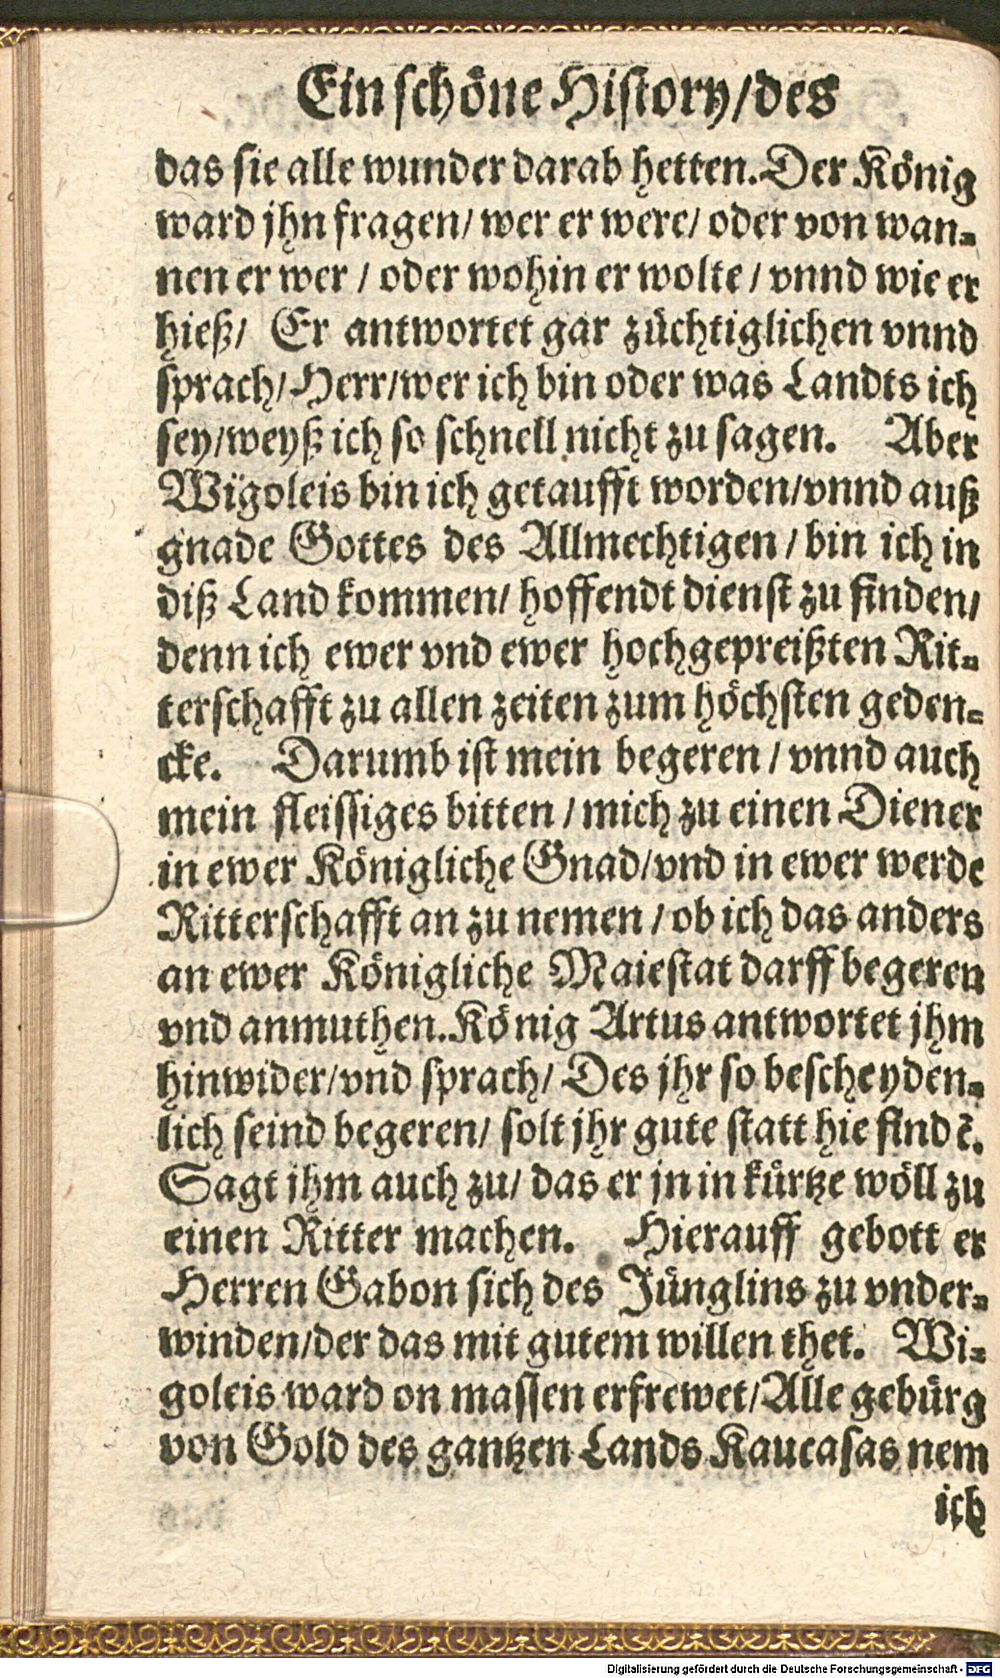 Ein schöne History/des
das sie alle wunder darab hetten. Der König
ward jhn fragen/ wer er were/ oder von wan-
nen er wer / oder wohin er wolte / vnnd wie er
hieß/ Er antwortet gar züchtiglichen vnnd
sprach/ Herr/wer ich bin oder was Landts ich
sey/weyß ich so schnell nicht zu sagen. Aber
Wigoleis bin ich getaufft worden/vnnd auß
gnade Gottes des Allmechtigen / bin ich in
diß Land kommen/ hoffendt dienst zu finden/
denn ich ewer vnd ewer hochgepreißten Rit-
terschafft zu allen zeiten zum höchsten geden-
cke. Darumb ist mein begeren / vnnd auch
mein fleissiges bitten / mich zu einen Diener
in ewer Königliche Gnad/vnd in ewer werde
Ritterschafft an zu nemen / ob ich das anders
an ewer Königliche Maiestat darff begeren
vnd anmuthen. König Artus antwortet jhm
hinwider/vnd sprach/ Des jhr so bescheyden-
lich seind begeren/ solt jhr gute statt hie findẽ.
Sagt jhm auch zu/ das er jn in kürtze wöll zu
einen Ritter machen. Hierauff gebott er
Herren Gabon sich des Jünglins zu vnder-
winden/der das mit gutem willen thet. Wi-
goleis ward on massen erfrewet/Alle gebürg
von Gold des gantzen Lands Kaucasas nem
ich
Digitalisierung gefördert durch die Deutsche Forschungsgemeinschaft - DFG